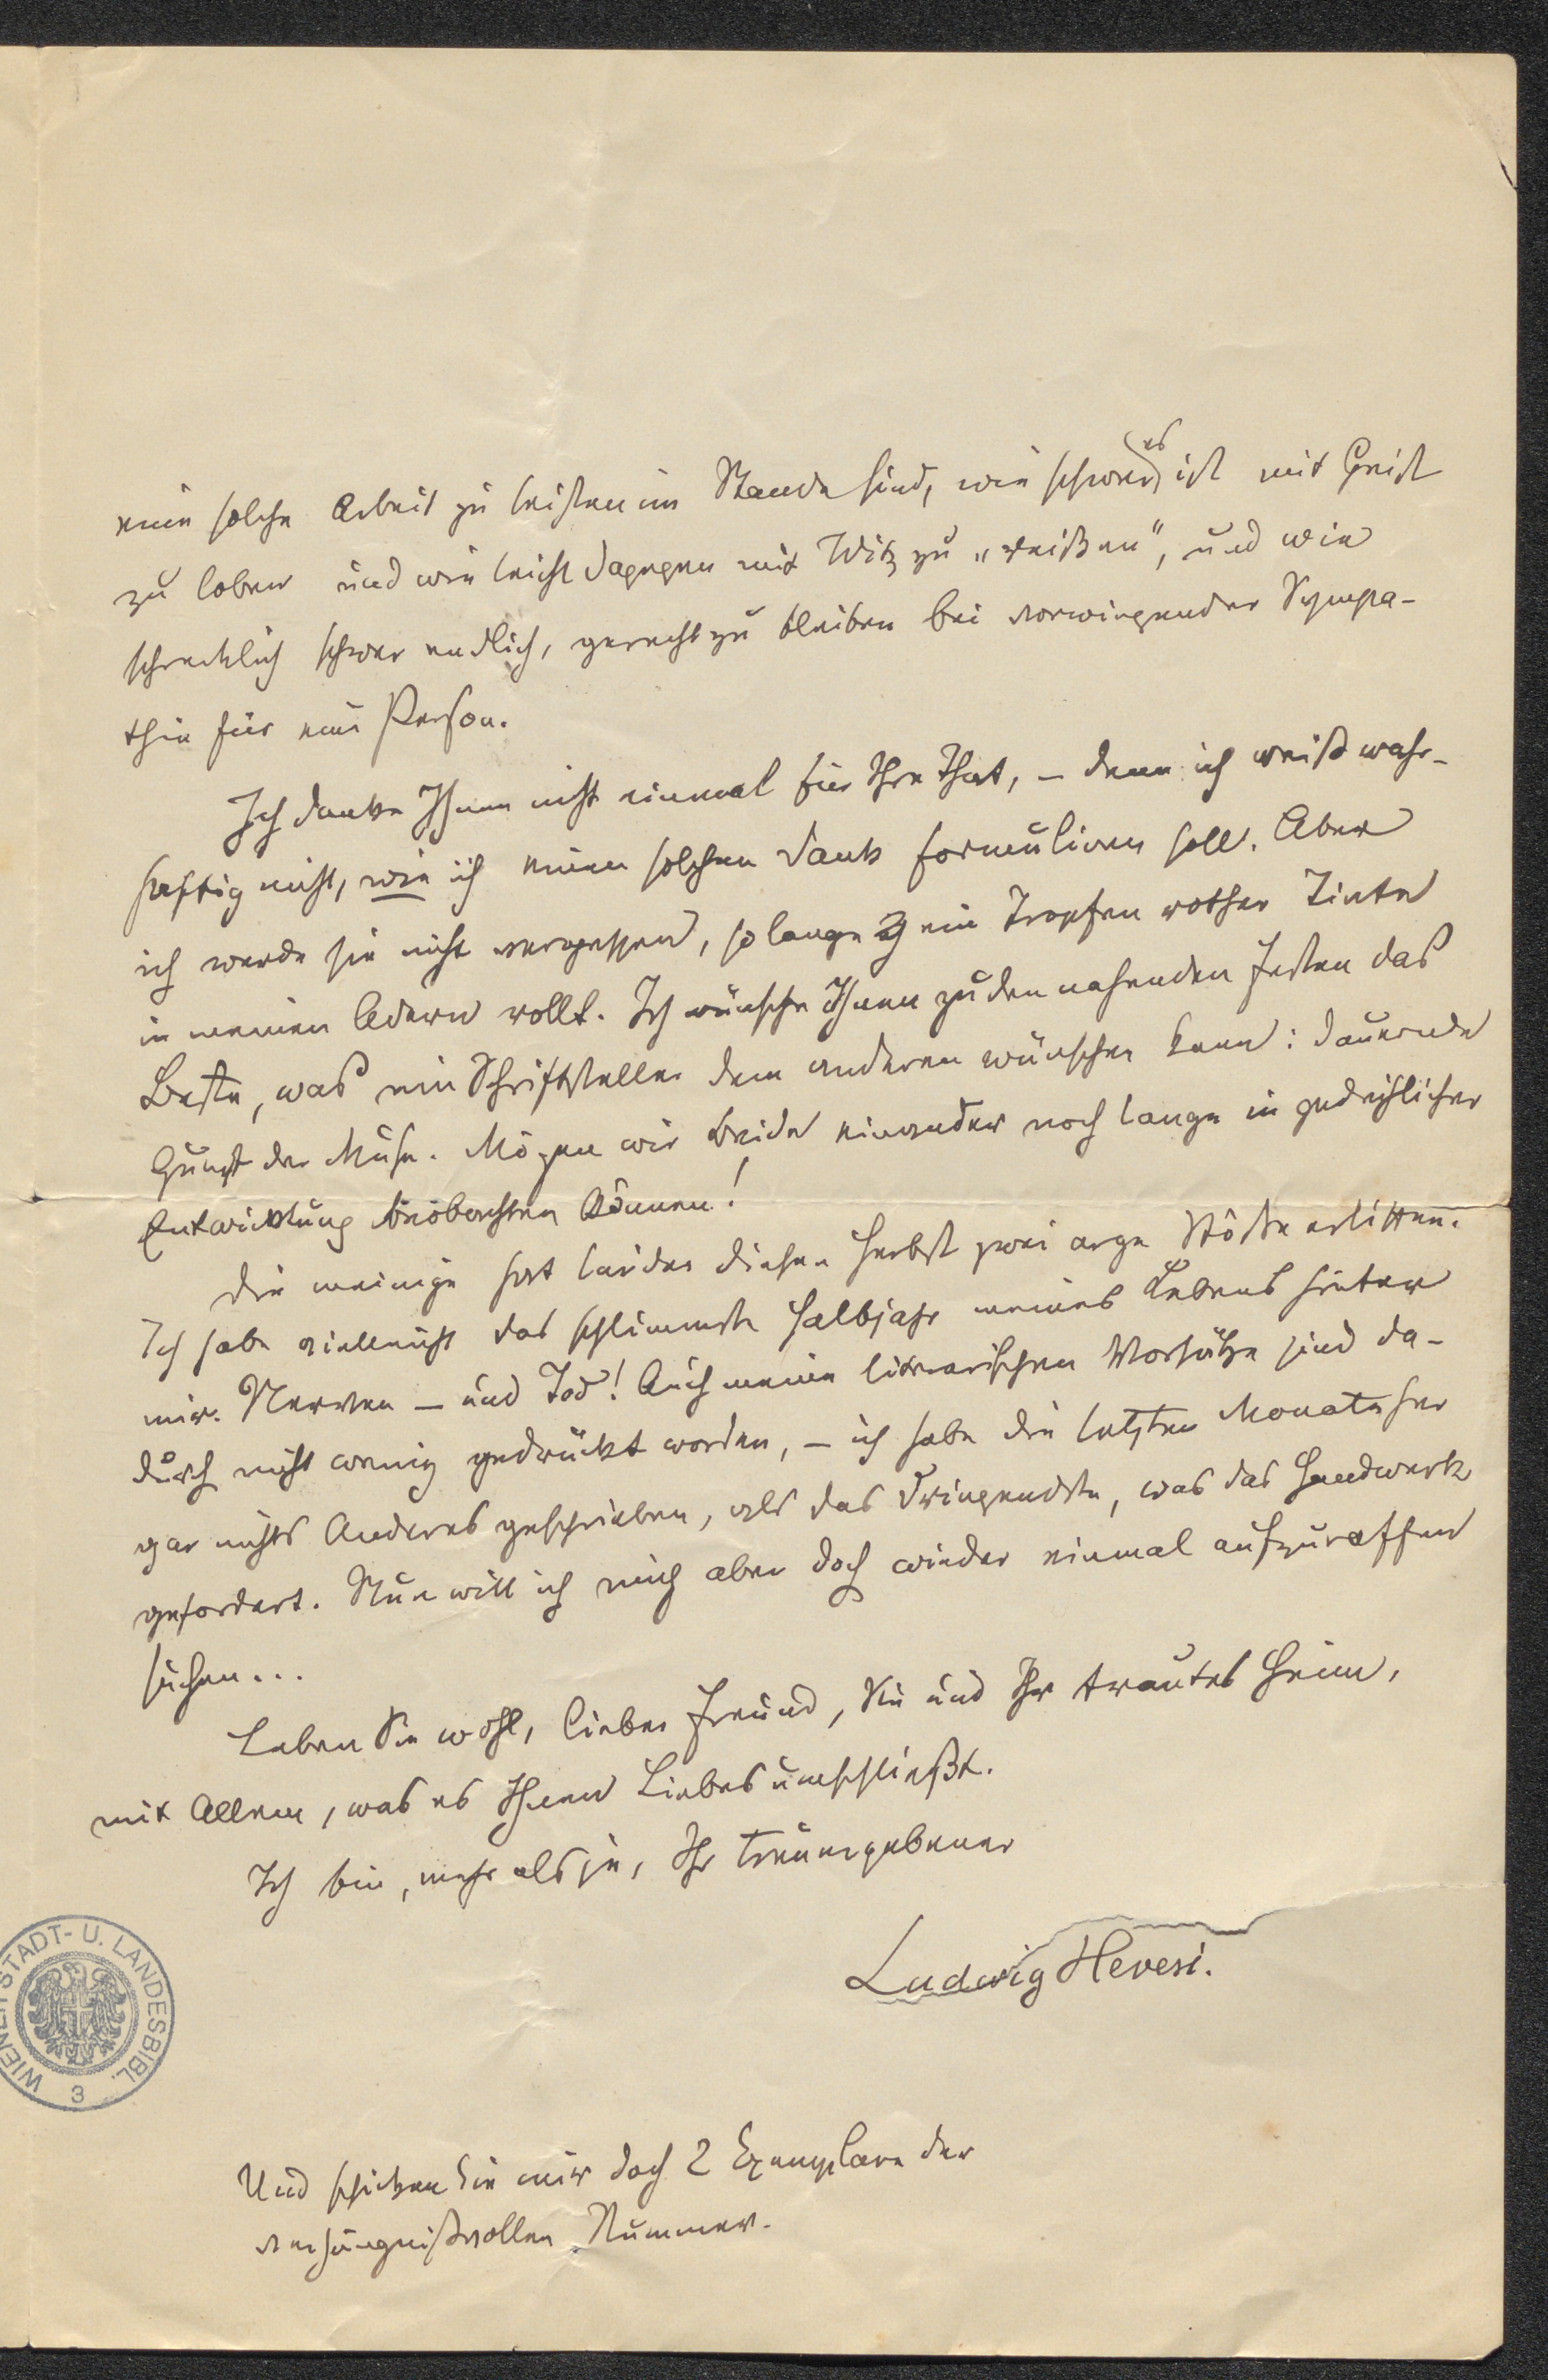 eine solche Arbeit zu leisten im Stande sind, wie schwer es ist mit Geist
zu loben und wie leicht dagegen mit Witz zu „reißen“, und wie
schrecklich schwer endlich, gerecht zu bleiben bei vorwiegender Sympa-
thie für eine Person.
Ich danke Ihnen nicht einmal für Ihre That, – denn ich weiß wahr-
haftig nicht, wie ich einen solchen Dank formuliren soll. Aber
ich werde sie nicht vergessen, so lange ein Tropfen rother Tinte
in meinen Adern rollt. Ich wünsche Ihnen zu den nahenden Festen das
Beste, was ein Schriftsteller dem anderen wünschen kann: dauernde
Gunst der Muse. Mögen wir Beide einander noch lange in gedeihlicher
Entwicklung beobachten können!
Die meinige hat leider diesen Herbst zwei arge Stöße erlitten.
Ich habe vielleicht das schlimmste Halbjahr meines Lebens hinter
mir. Nerven – und Tod! Auch meine literarischen Vorsätze sind da-
durch nicht wenig gedrückt worden, – ich habe die letzten Monate her
gar nichts Anderes geschrieben, als das Dringendste, was das Handwerk
gefordert. Nun will ich mich aber doch wieder einmal aufzuraffen
suchen...
Leben Sie wohl, lieber Freund, Sie und Ihr trautes Heim,
mit Allem, was es Ihnen Liebes umschließt.
Ich bin, mehr als je, Ihr treuergebener
Ludwig Hevesi.
WIENER STADT- U. LANDESBIBL.
3
Und schicken Sie mir doch 2 Exemplare der
verhängnißvollen Nummer.